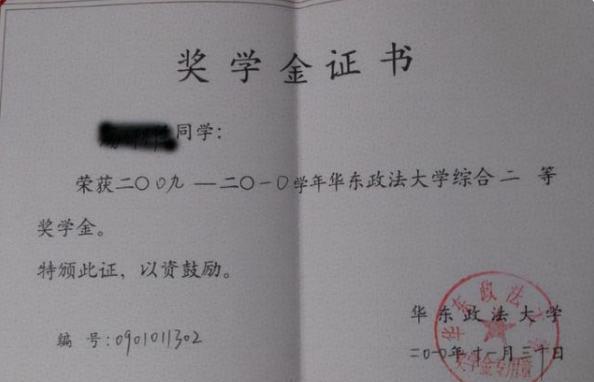 奖学金证书
同学:
荣获二〇〇九—二〇一〇学年华东政法大学综合二 等
奖学金。
特颁此证，以资鼓励。
华东政法大学
编 号:0901011302
二〇一〇年十一月三十日
华东政法大学
奖学金专用章